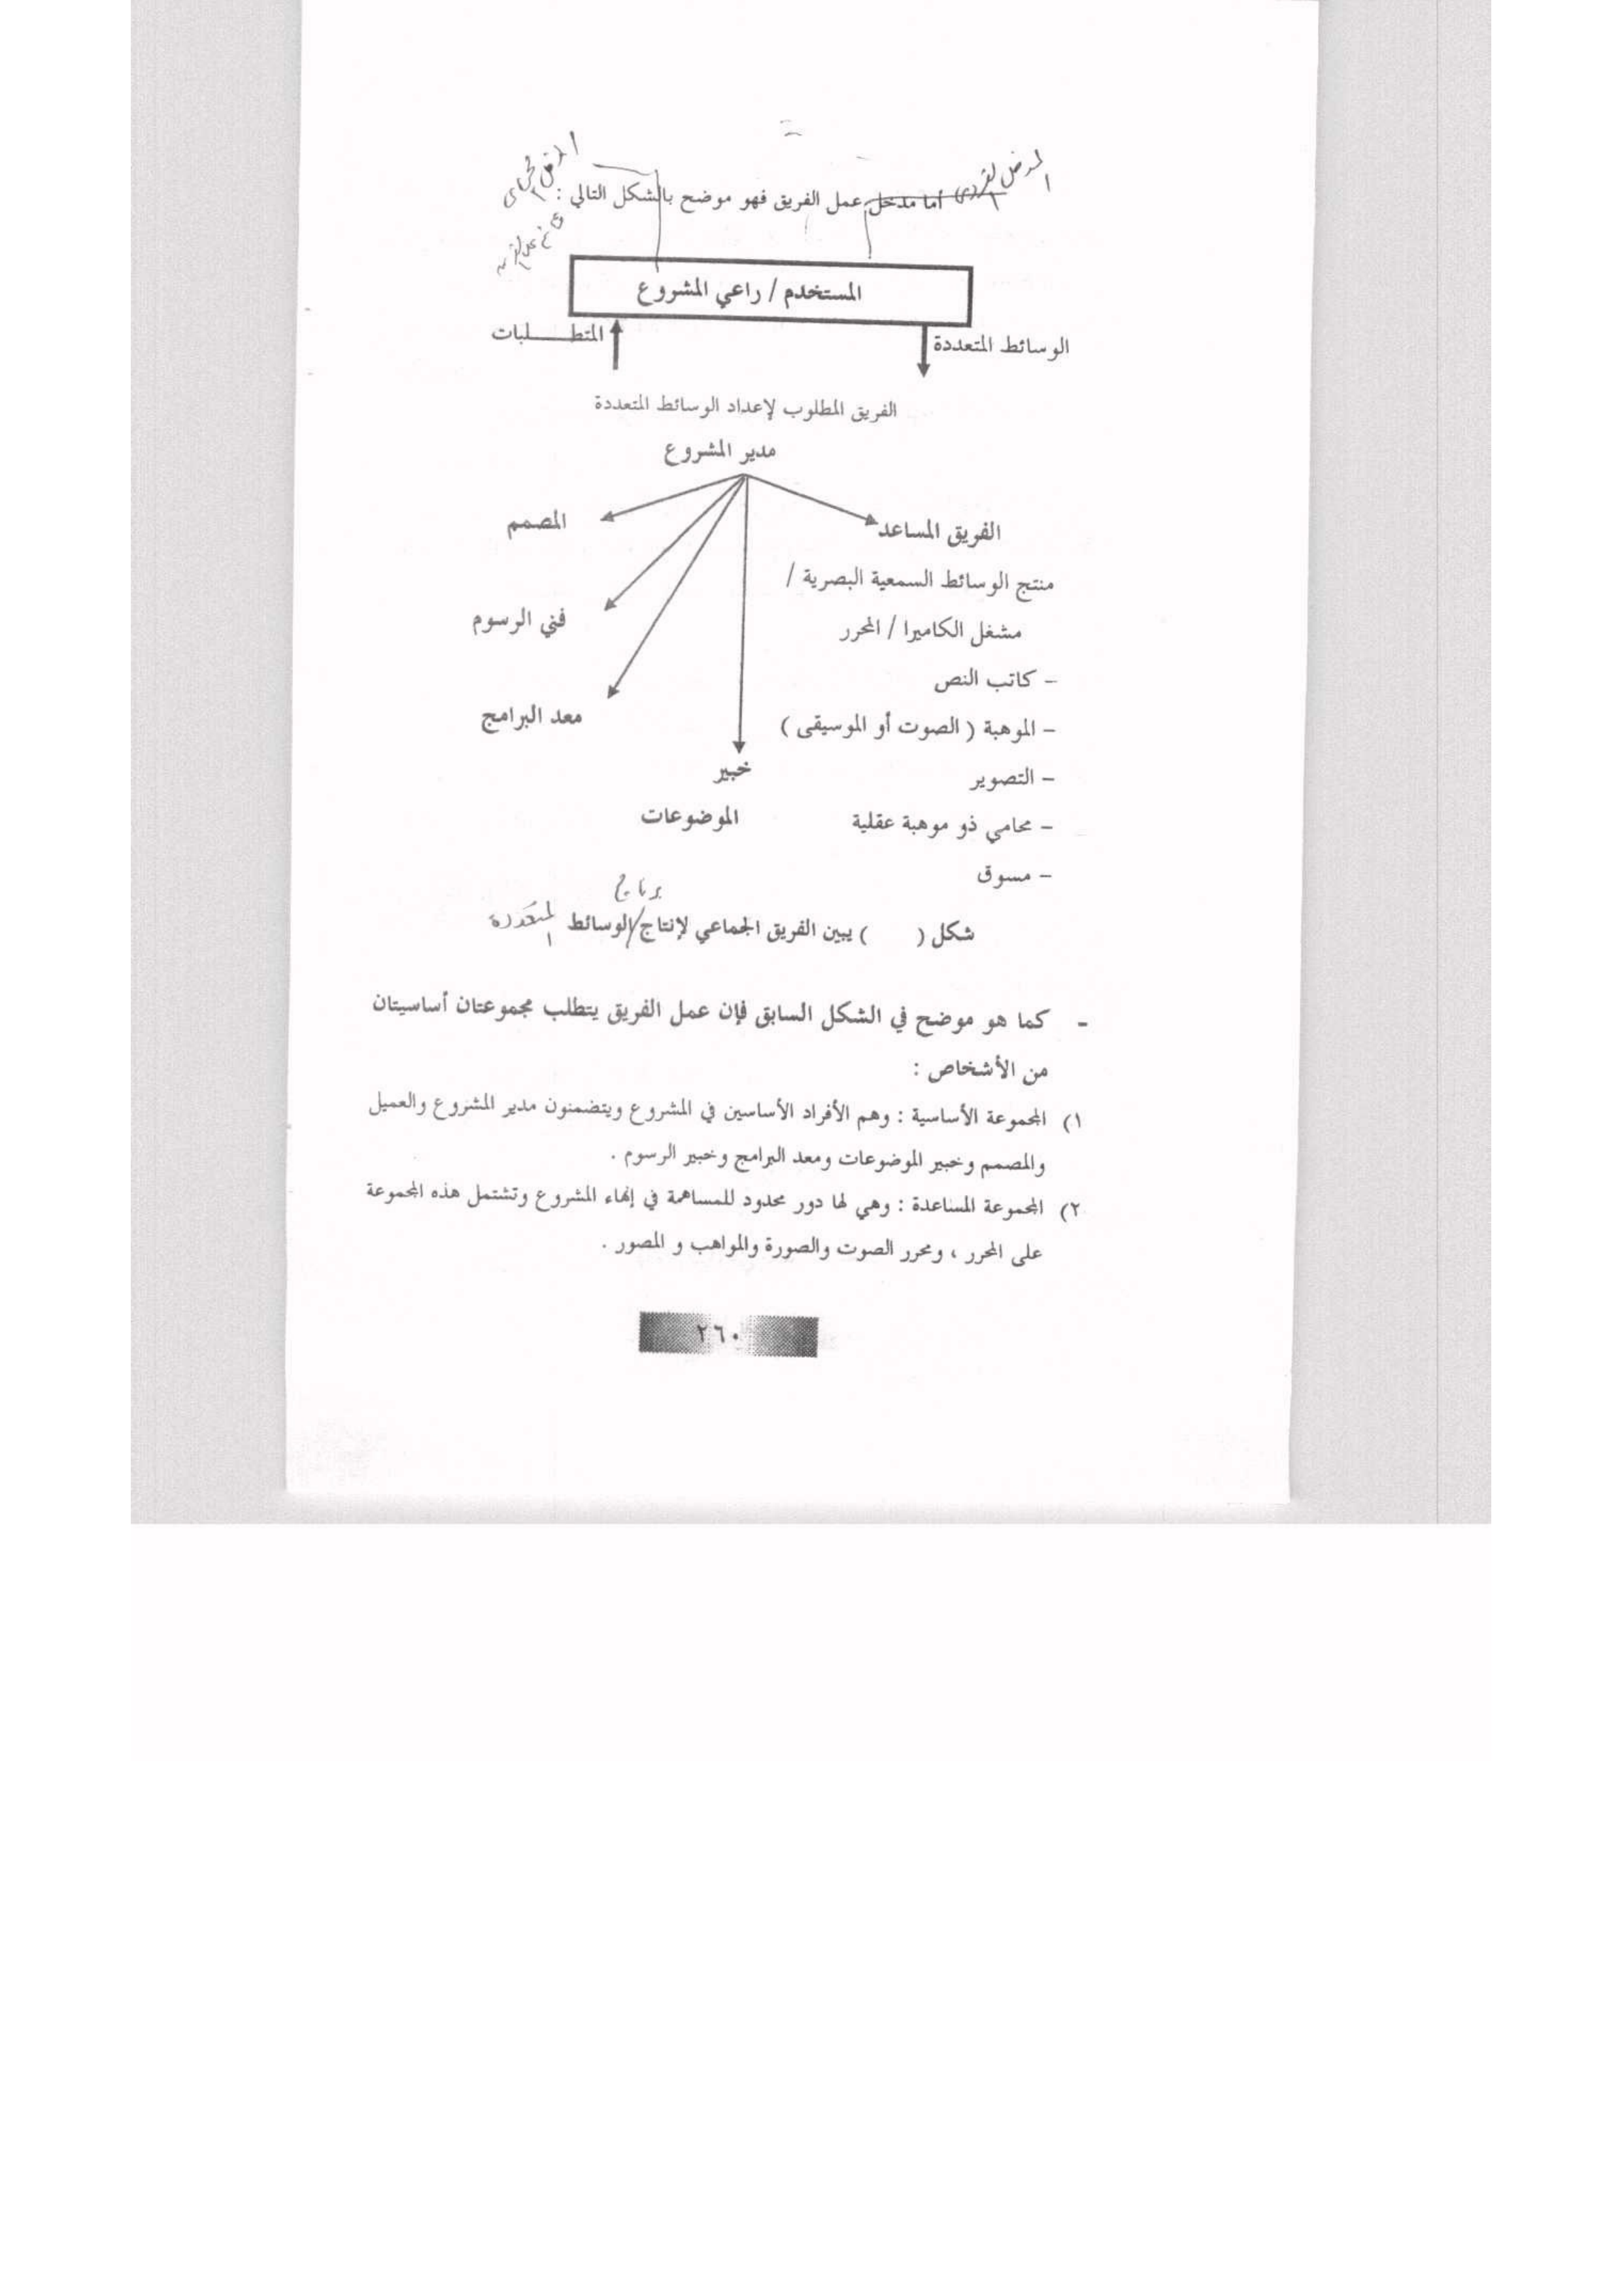 المدخل الفردي
أما مدخل عمل الفريق فهو موضح بالشكل التالي :
المستخدم / راعي المشروع
الوسائط المتعددة
المتطـــلبات
الفريق المطلوب لإعداد الوسائط المتعددة
مدير المشروع
الفريق المساعد
المصمم
منتج الوسائط السمعية البصرية /
فني الرسوم
مشغل الكاميرا / المحرر
– كاتب النص
معد البرامج
– الموهبة ( الصوت أو الموسيقى )
خبير
– التصوير
الموضوعات
– محامي ذو موهبة عقلية
– مسوق
برنامج
شكل ( ) يبين الفريق الجماعي لإنتاج/الوسائط المتعددة
- كما هو موضح في الشكل السابق فإن عمل الفريق يتطلب مجموعتان أساسيتان
من الأشخاص :
١) المجموعة الأساسية : وهم الأفراد الأساسين في المشروع ويتضمنون مدير المشروع والعميل
والمصمم وخبير الموضوعات ومعد البرامج وخبير الرسوم .
٢) المجموعة المساعدة : وهي لها دور محدود للمساهمة في إنهاء المشروع وتشتمل هذه المجموعة
على المحرر ، ومحرر الصوت والصورة والمواهب و المصور .
٢٦٠